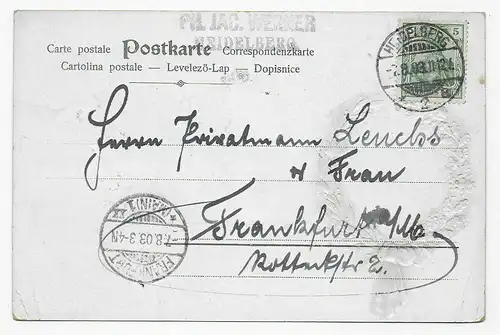 PH. JAC. WERNER
HEIDELBERG
Carte postale Postkarte Correspondenzkarte
Cartolina postale — Levelezö-Lap — Dopisnice
HEIDELBERG
7.8.03.
5
Herrn Privatmann Leuchs
u Frau
Frankfurt a/M
Rotteckstr 2.
FRANKFURT
7.8.03.3-4N
* (MAIN) 1